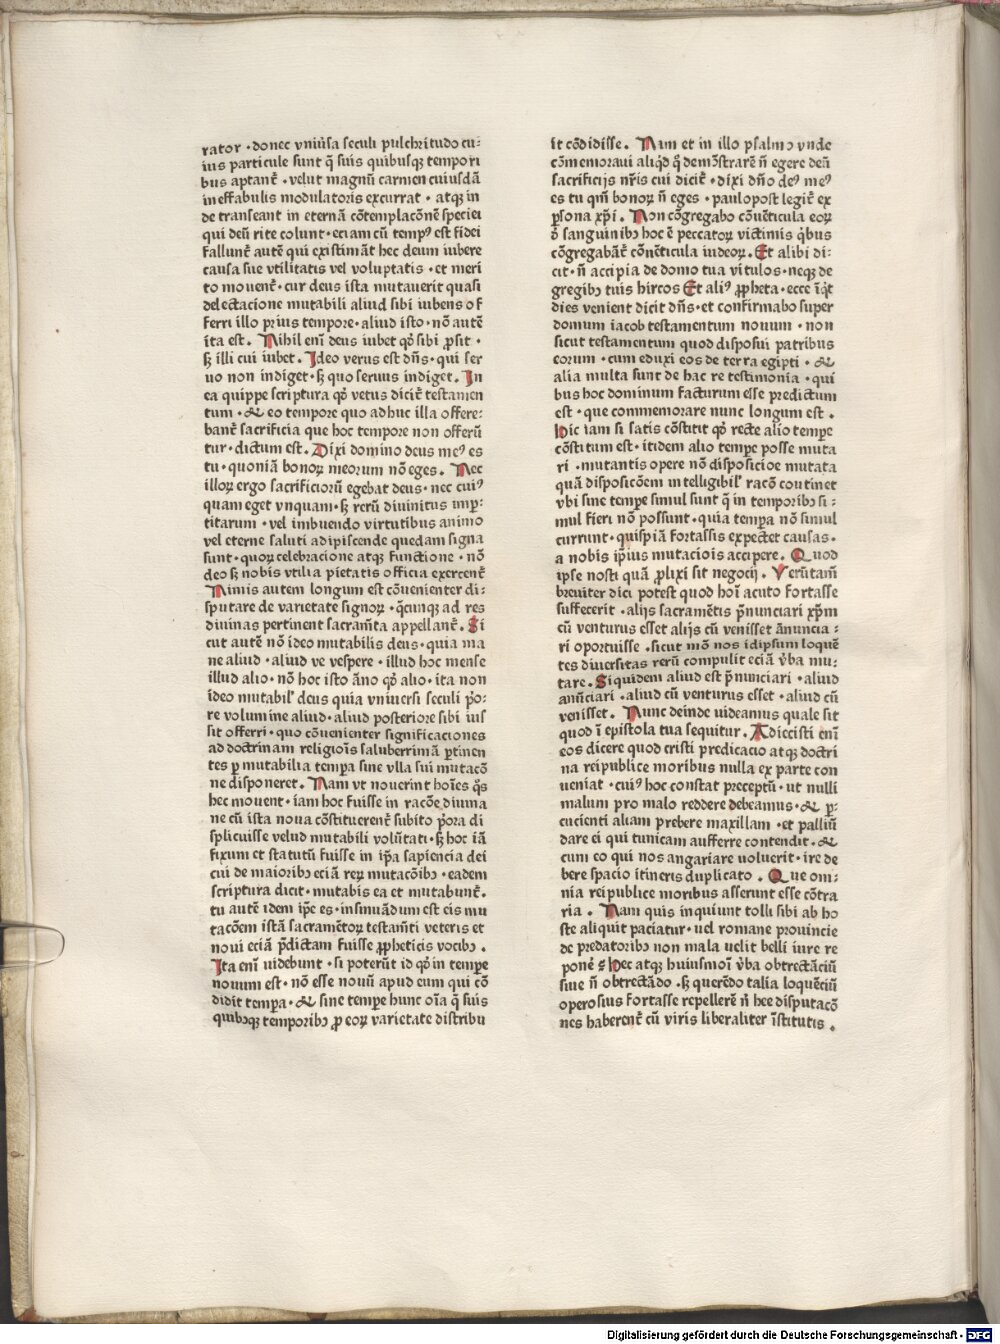 rator · donec vniũsa seculi pulchritudo cu⸗
ius particule sunt q̃ suis quibusqꝫ tempori
bus aptant᷑ · velut magnũ carmen cuiusdã
ineffabilis modulatoris excurrat · atqꝫ in
de transeant in eternã cõtemplacõnẽ speciei
qui deũ rite colunt · eciam cũ tempꝰ est fidei
fallunt᷑ autẽ qui existimãt hec deum iubere
causa sue vtilitatis vel voluptatis · et meri
to mouent᷑ · cur deus ista mutauerit quasi
delectacione mutabili aliud sibi iubens of
ferri illo prius tempore · aliud isto · nõ autẽ
ita est . Nihil em̃ deus iubet qđ sibi ꝓsit ·
sꝫ illi cui iubet . Ideo verus est dñs · qui ser
uo non indiget · sꝫ quo seruus indiget . In
ea quippe scriptura qđ vetus dicit᷑ testamen
tum · & eo tempore quo adhuc illa offere⸗
bant᷑ sacrificia que hoc tempore non offerũ
tur · dictum est . Dixi domino deus meꝰ es
tu · quoniã bonoꝝ meorum nõ eges . Nec
illoꝝ ergo sacrificiorũ egebat deus · nec cuiꝰ
quam eget vnquam · sꝫ rerũ diuinitus imꝑ⸗
titarum · vel imbuendo virtutibus animo
vel eterne saluti adipiscende quedam signa
sunt · quoꝝ celebracione atqꝫ functione · nõ
deo sꝫ nobis vtilia pietatis officia exercent᷑
Nimis autem longum est cõuenienter di⸗
sputare de varietate signoꝝ · q̃cunqꝫ ad res
diuinas pertinent sacram̃ta appellant᷑ . Si
cut autẽ nõ ideo mutabilis deus · quia ma
ne aliud · aliud ve vespere · illud hoc mense
illud alio · nõ hoc isto ãno qđ alio · ita non
ideo mutabil' deus quia vniuersi seculi p̃o⸗
re volumine aliud · aliud posteriore sibi ius
sit offerri · quo cõuenienter significaciones
ad doctrinam religiois̃ saluberrimã ꝑtinen
tes ꝑ mutabilia tempa̲ sine vlla sui mutacõ
ne disponeret . Nam vt nouerint hoĩes q̃s
hec mouent · iam hoc fuisse in racõe diuina
ne cũ ista noua cõstituerent᷑ subito p̃ora di
splicuisse velud mutabili volũtati · sꝫ hoc iã
fixum et statutũ fuisse in ip̃a sapiencia dei
cui de maioribꝫ eciã reꝝ mutacõibꝫ · eadem
scriptura dicit · mutabis ea et mutabunt᷑ .
tu autẽ idem ip̃e es · insinuãdum est eis mu
tacõem istã sacramẽtoꝝ testam̃ti veteris et
noui eciã p̃dictam fuisse ꝓpheticis vocibꝫ .
Ita em̃ uidebunt · si poterũt id qđ in temp̲e
nouum est · nõ esse nouũ apud eum qui cõ
didit temp̲a · & sine temp̲e hunc oĩa q̃ suis
quibꝫqꝫ temporibꝫ ꝓ eoꝝ varietate distribu
it cõdidisse . Nam et in illo psalmo vnde
cõmemoraui aliq̃d q̃ demõstrarẽ ñ egere deũ
sacrificijs nr̃is cui dicit᷑ · dixi dño deꝰ meꝰ
es tu qm̃ bonoꝝ ñ eges · paulopost legit᷑ ex
ꝑsona xp̃i . Non cõgregabo cõuẽticula eoꝝ
đ sanguinibꝫ hoc ẽ peccatoꝝ victimis q̃bus
cõgregabãt᷑ cõuẽticula iudeoꝝ . Et alibi di⸗
cit · ñ accipia de domo tua vitulos · neqꝫ de
gregibꝫ tuis hircos Et aliꝰ ꝓpheta · ecce iq̃t
dies venient dicit dñs · et confirmabo super
domum iacob testamentum nouum · non
sicut testamentum quod disposui patribus
eorum · cum eduxi eos de terra egipti · &
alia multa sunt de hac re testimonia · qui
bus hoc dominum facturum esse predictum
est · que commemorare nunc longum est .
Hic iam si satis cõstitit qđ recte alio temp̲e
cõstitum est · itidem alio temp̲e posse muta
ri · mutantis opere nõ disposicioe mutata
quã disposicõem intelligibil' racõ continet
vbi sine temp̲e simul sunt q̃ in temporibꝫ si⸗
mul fieri nõ possunt · quia temp̲a nõ simul
currunt · quispiã fortassis expectet causas ·
a nobis ip̃ius mutaciois accipere . Quod
ipse nosti quã ꝓlixi sit negocij . Verũtam̃
breuiter dici potest quod hoĩ acuto fortasse
suffecerit · alijs sacramẽtis p̃nunciari xp̃m
cũ venturus esset alijs cũ venisset ãnuncia⸗
ri oportuisse · sicut mõ nos idipsum loquẽ
tes diuersitas rerũ compulit eciã v̾ba mu⸗
tare . Siquidem aliud est p̃nunciari · aliud
anũciari · aliud cũ venturus esset · aliud cũ
venisset . Nunc deinde uideamus quale sit
quod ĩ epistola tua sequitur . Adiecisti em̃
eos dicere quod cristi predicacio atqꝫ doctri
na reipublice moribus nulla ex parte con
ueniat · cuiꝰ hoc constat preceptũ · ut nulli
malum pro malo reddere debeamus · & ꝑ⸗
cucienti aliam prebere maxillam · et palliũ
dare ei qui tunicam aufferre contendit · &
cum eo qui nos angariare voluerit · ire de
bere spacio itineris duplicato . Que om⸗
nia reipublice moribus asserunt esse cõtra
ria . Nam quis inquiunt tolli sibi ab ho
ste aliquit paciatur · uel romane prouincie
de predatoribꝫ non mala uelit belli iure re
ponẽ ꝭ Hec atqꝫ huiusmoĩ v̾ba obtrectãciũ
siue ñ obtrectãdo · sꝫ querẽdo talia loquẽciũ
operosius fortasse repellerẽ ñ hee disputacõ
nes haberent᷑ cũ viris liberaliter ĩstitutis .
Digitalisierung gefördert durch die Deutsche Forschungsgemeinschaft - DFG